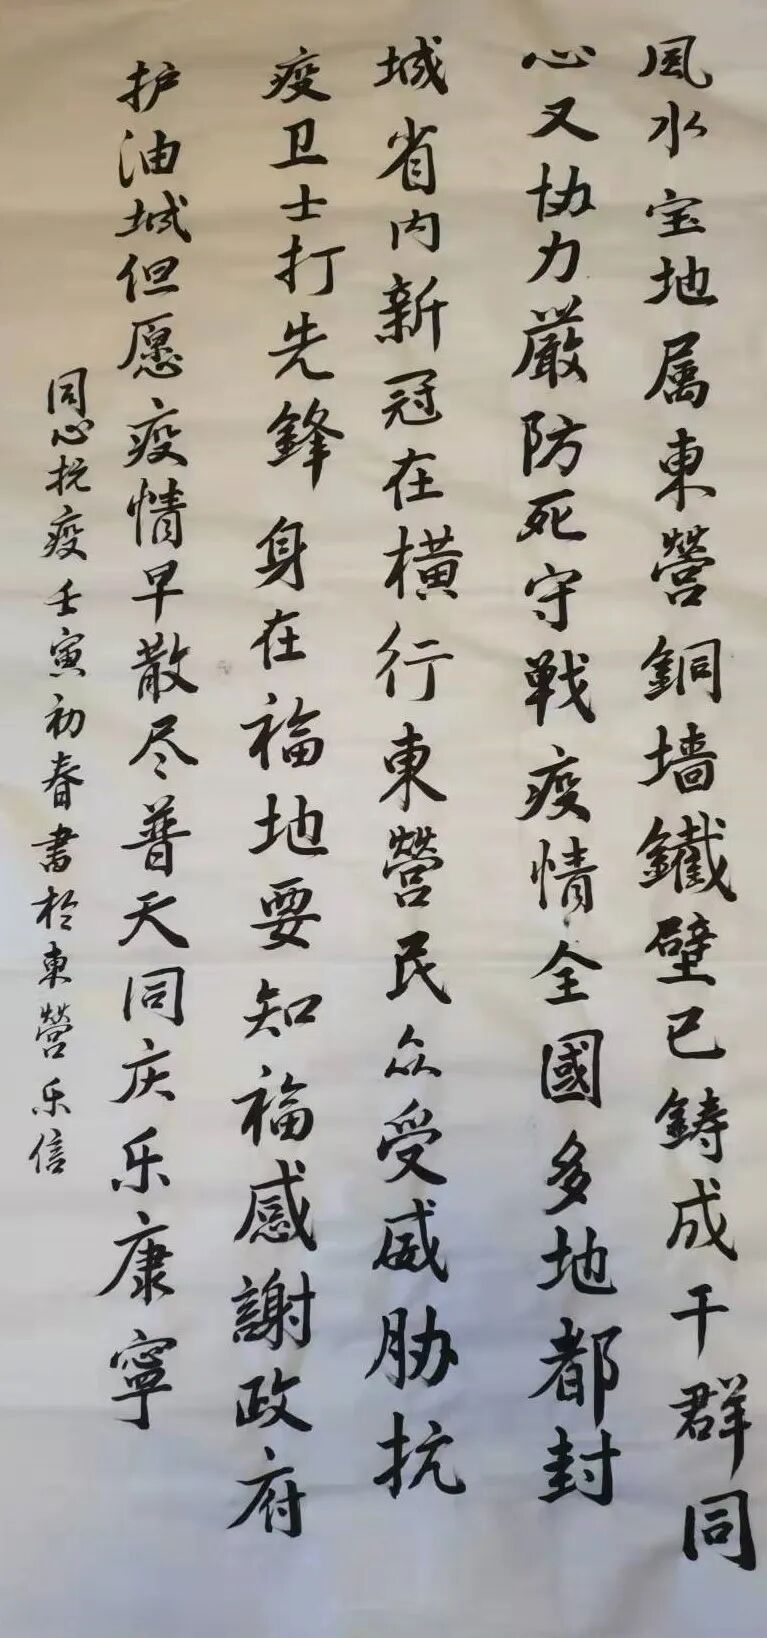 風水宝地属東營銅墙鐵壁已鋳成干群同
心又协力厳防死守戦疫情全國多地都封
城省内新冠在横行東營民众受威胁抗
疫卫士打先鋒身在福地要知福感謝政府
护油城但愿疫情早散尽普天同庆乐康寧
同心抗疫壬寅初春書於東營乐信